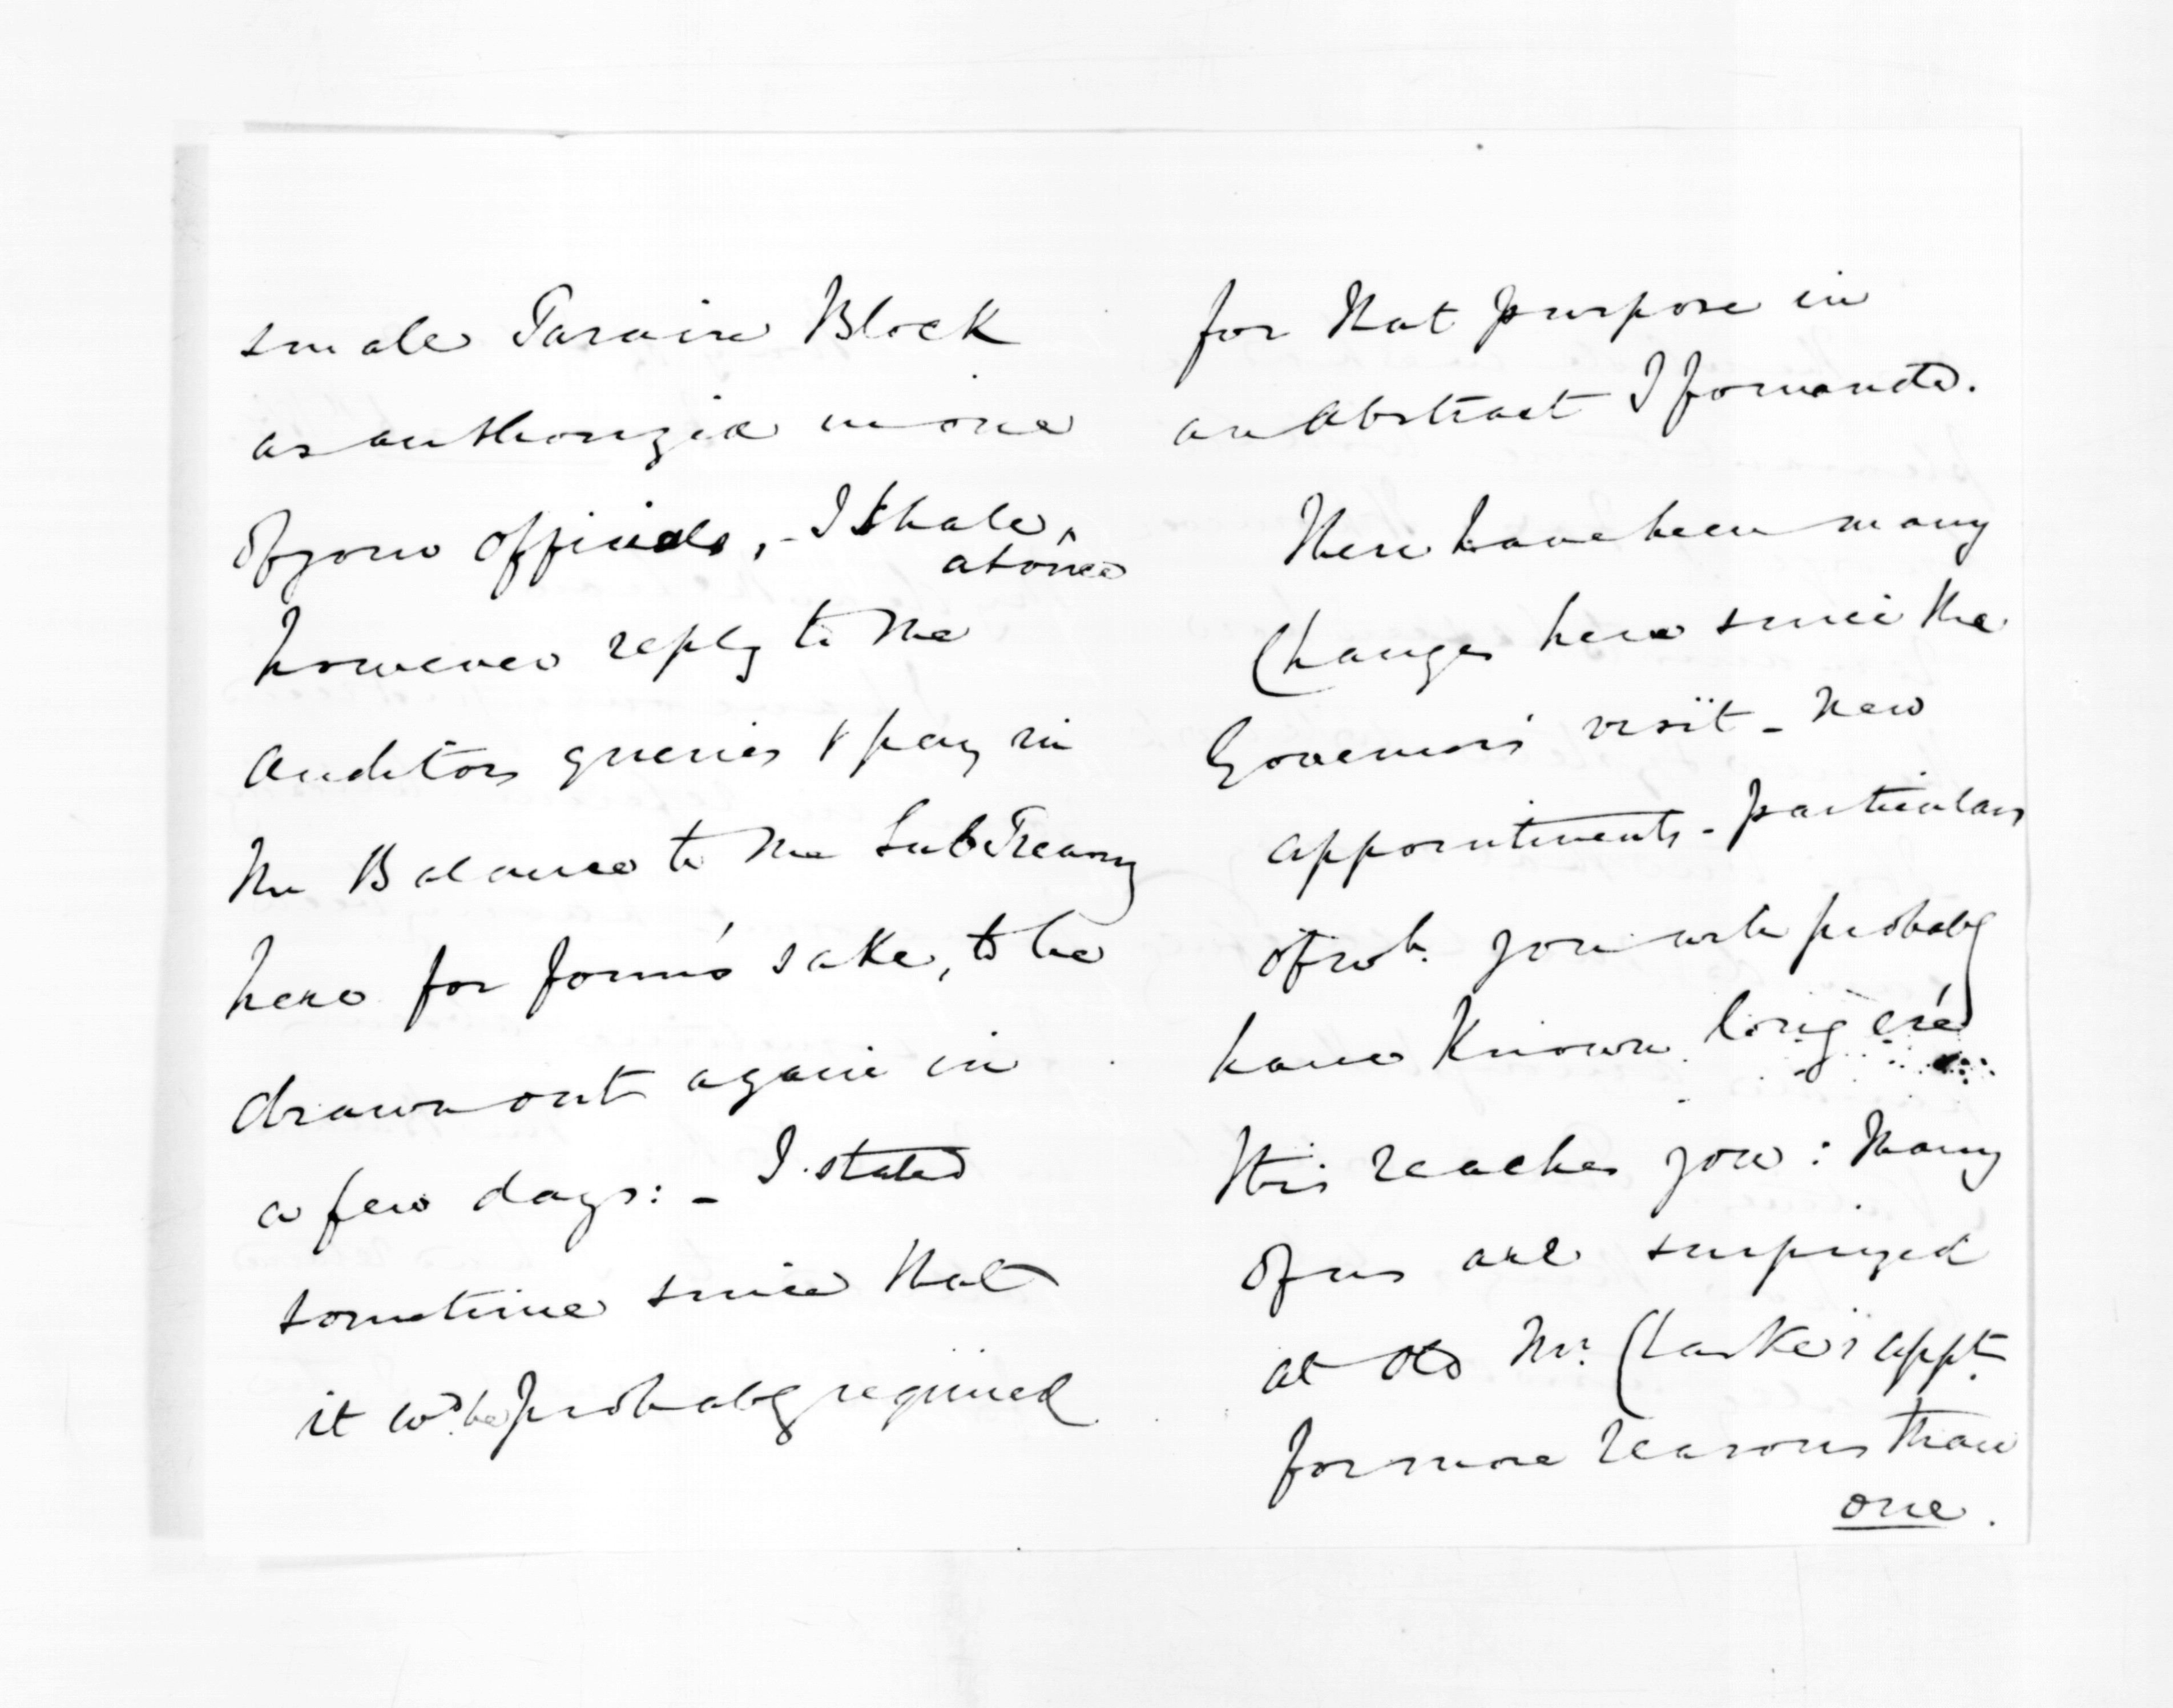 small Tarawa Block
as authorized in one
of your officials, - I shall,
at once
however reply to the
Auditors queries & pay in
the Balance to the SubTreasy
here for form's sake, to be
drawn out again in
a few days: - I stated
sometime since that
it wd. be probably required
for that purpose in
an Abstract I forwarded.
There have been many
Changes here since the
Governor's visit - New
appointments - particulars
of wh. you will probably
have known long ere
this reaches you: Many
of us are surprized
at old Mr. Clarke's appt.
for more reasons than
one.